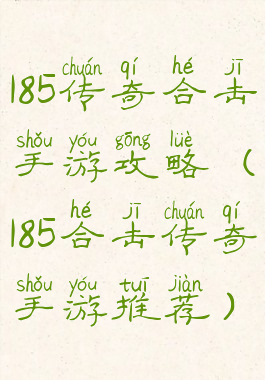 chuán qí hé jī
185传奇合击
shǒu yóu gōng lüè
手游攻略（
hé jī chuán qí
185合击传奇
shǒu yóu tuī jiàn
手游推荐）